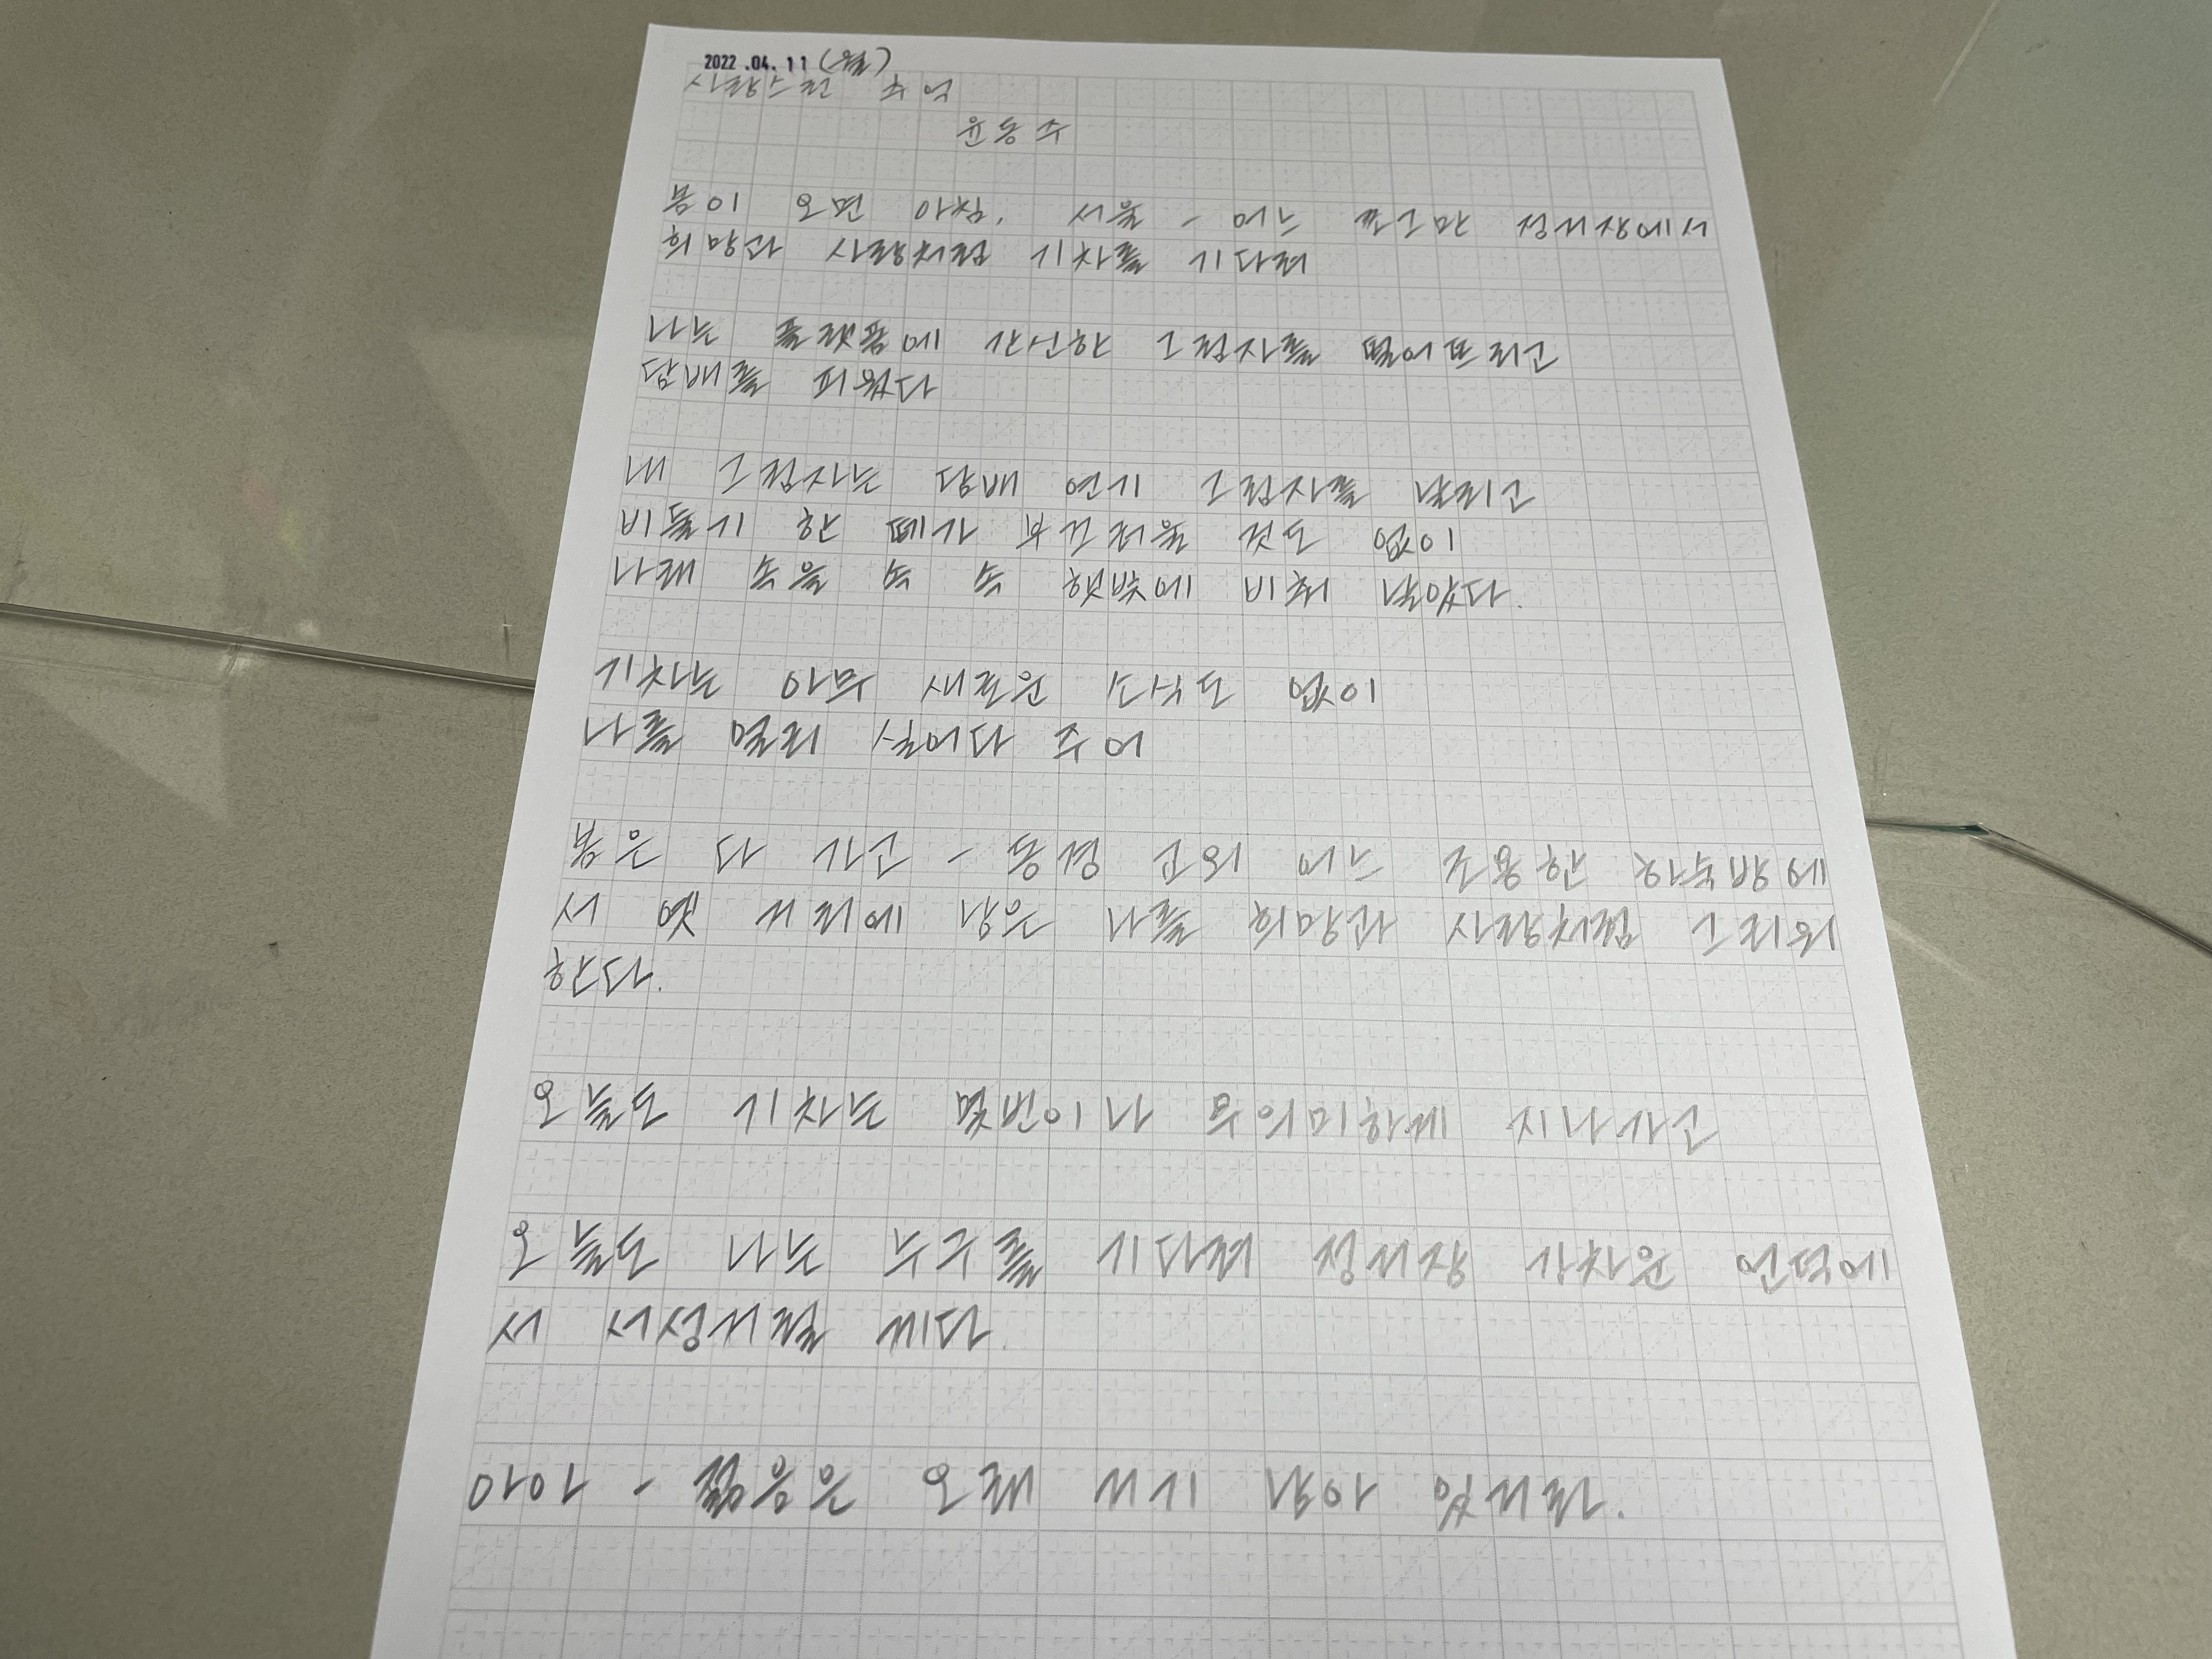 2022.04.11 (월)
사랑스런 추억
윤동주
봄이 오면 아침, 서울 - 어느 쪼그만 정거장에서
희망과 사랑처럼 기차를 기다려
나는 플랫폼에 간신한 그림자를 떨어뜨리고
담배를 피웠다
내 그림자는 담배 연기 그림자를 날리고
비둘기 한 떼가 부끄러울 것도 없이
나래 속을 속 속 햇빛에 비춰 날았다.
기차는 아무 새로운 소식도 없이
나를 멀리 실어다 주어
봄은 다 가고 - 동경 교외 어느 조용한 하숙방에
서 옛 거리에 남은 나를 희망과 사랑처럼 그리워
한다.
오늘도 기차는 몇번이나 무의미하게 지나가고
오늘도 나는 누구를 기다려 정거장 가차운 언덕에
서 서성거릴 게다.
아아 - 젊음은 오래 거기 남아 있거라.